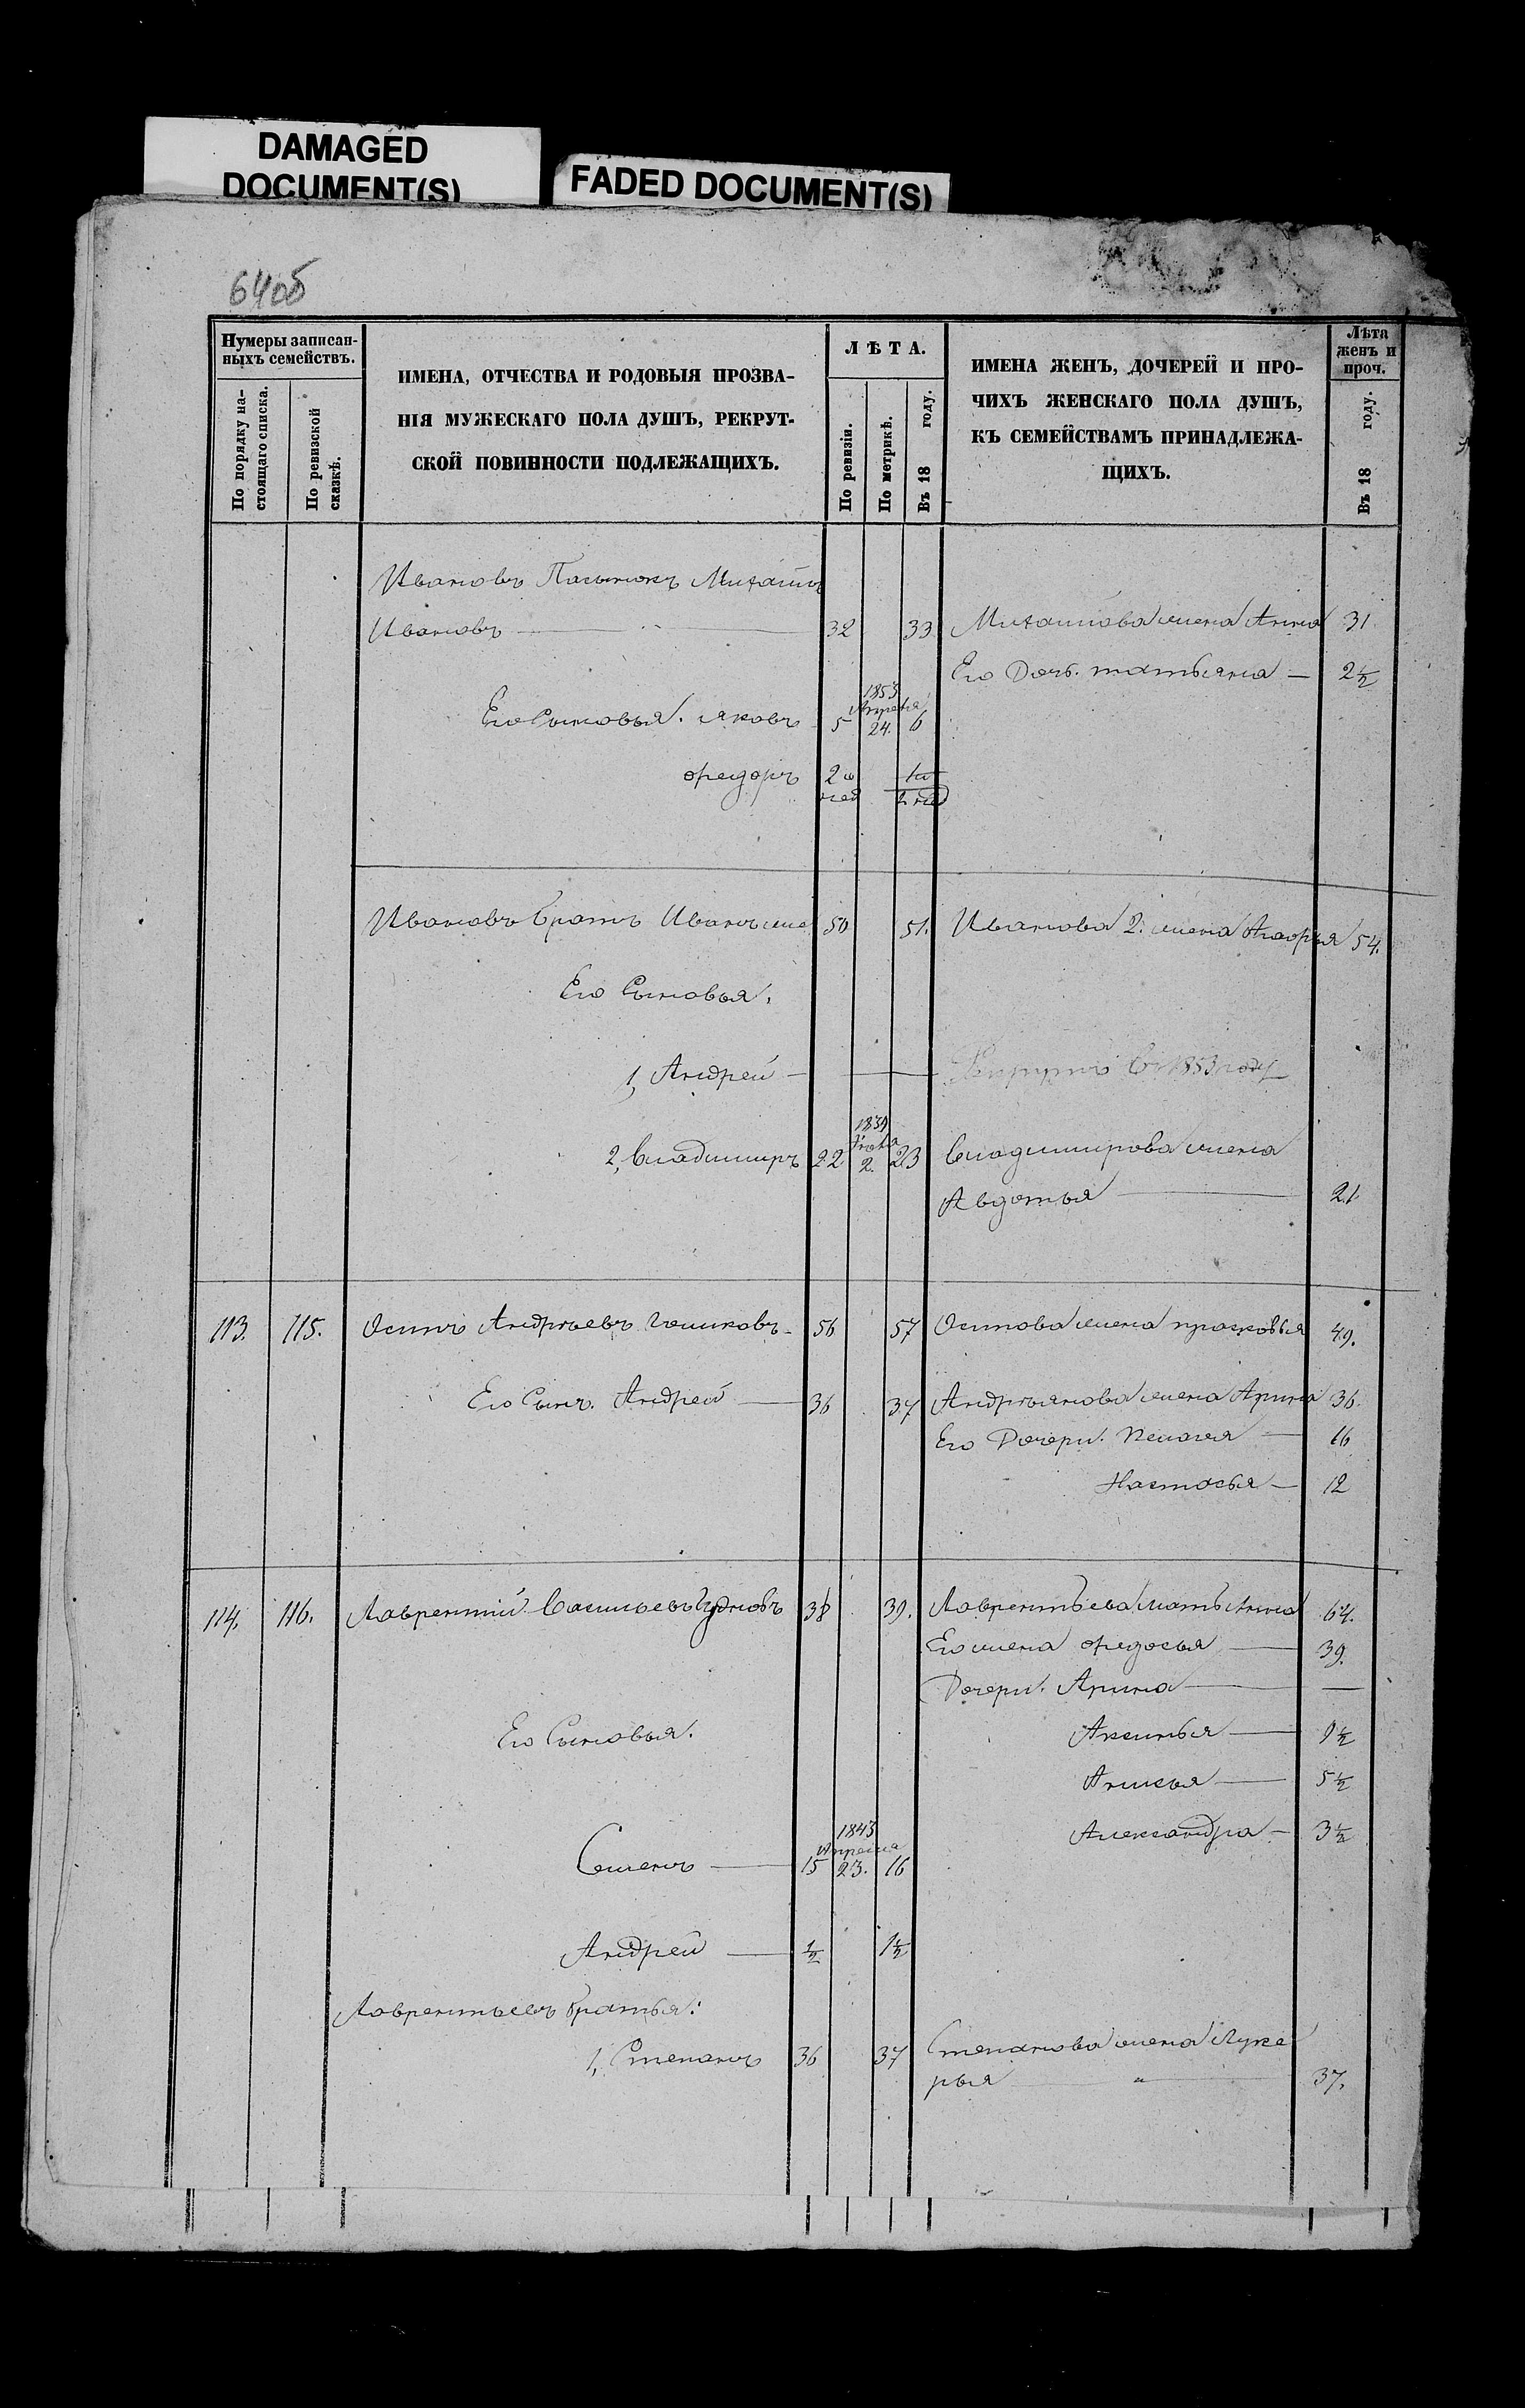 DAMAGED
DOCUMENT(S)
FADED DOCUMENT(S)
64об
Нумеры записан-
ныхъ семействъ.
По порядку на-
стоящаго списка.
По ревизской
сказкѣ.
ИМЕНА, ОТЧЕСТВА И РОДОВЫЯ ПРОЗВА-
НІЯ МУЖЕСКАГО ПОЛА ДУШЪ, РЕКРУТ-
СКОЙ ПОВИННОСТИ ПОДЛЕЖАЩИХЪ.
ЛѢТА.
По ревизіи.
По метрикѣ.
Въ 18 году.
ИМЕНА ЖЕНЪ, ДОЧЕРЕЙ И ПРО-
ЧИХЪ ЖЕНСКАГО ПОЛА ДУШЪ,
КЪ СЕМЕЙСТВАМЪ ПРИНАДЛЕЖА-
ЩИХЪ.
Лѣта
женъ и
проч.
Въ 18 году.
Ивановъ Пасынокъ Михаилъ
Ивановъ — 32 33 Михаилова жена Анна 31
Его Дочь. татьяна — 2½
1853
Апреля
Его Сыновья. яковъ 5 24. 6
ѳедоръ 2 1
нед 2 нед
Ивановъ братъ Иванъ же 50 51. Иванова 2. жена 54.
Его Сыновья.
1, Андрей — Рекрутъ в 1853 году
1834
2, владимиръ 22 2. 23 владимирова жена
Авдотья — 21
113. 115. Осипъ Андрѣевъ — 56 57 Осипова жена прасковья 49.
Его Сынъ. Андрей — 36 37 Андрѣянова жена Арина 36.
Его Дочери. Пелагея — 16
Настасья — 12
114. 116. Лаврентий Васильевъ 38 39. Лаврентьева мать Анна 64.
Его жена ѳедосья — 39.
Дочери. Арина — —
Его Сыновья.
Аксинья — 9½
Анисья — 5½
Александра — 3½
1843
Апреля
Семенъ — 15 23. 16
Андрей — ½ 1½
Лаврентьевъ братья:
1, Степанъ 36 37 Степанова жена Луке
рья — 37.